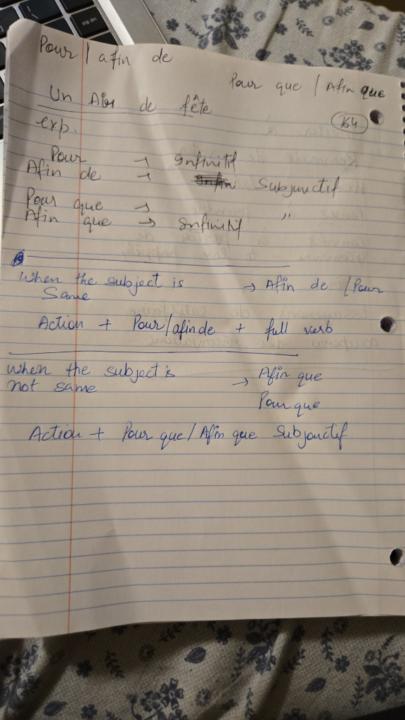 Pour / afin de
Pour que / Afin que
Un Air de fête
64
exp.
Pour → Infinitif
Afin de → Subjunctif
Pour que → "
Afin que → Infinitif
When the subject is → Afin de / Pour
Same
Action + Pour/afin de + full verb
When the subject is → Afin que
not same
Pour que
Action + Pour que/Afin que Subjonctif